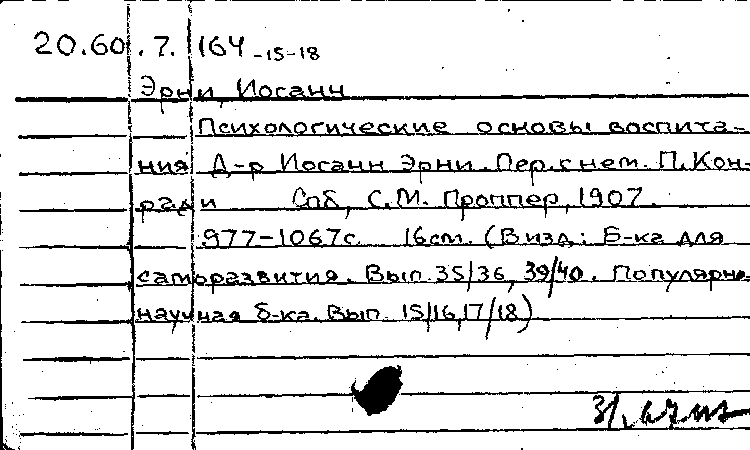 20.60.7.164-15-18
Эрни, Иоганн
Психологические основы воспита-
ния Д-р Иоганн Эрни. Пер. с нем. П. Кон-
ради Спб, С.М. Проппер, 1907.
977-1067с. 16см. (В изд.: Б-ка для
саморазвития. Вып. 35/36, 39/40. Популярно-
научная б-ка. Вып. 15/16, 17/18)